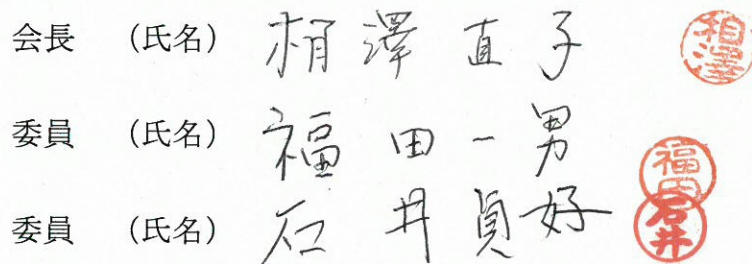 会長 (氏名) 相澤直子 相澤
委員 (氏名) 福田一男 福田
委員 (氏名) 石井貞好 石井